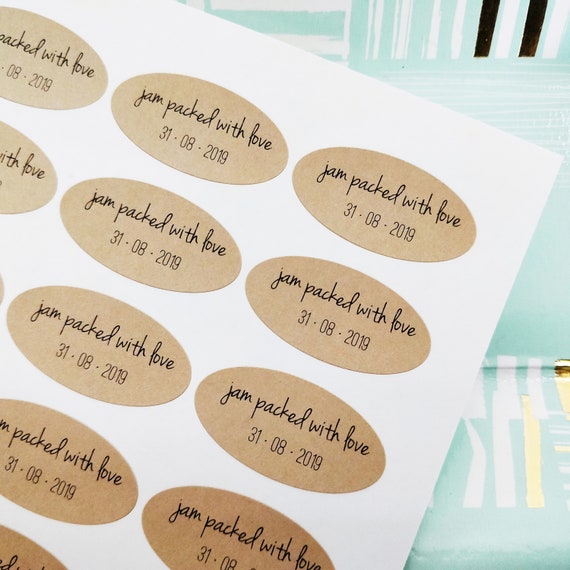 packed with love
08 · 2019
jam packed with love
31 · 08 · 2019
jam packed with love
31 · 08 · 2019
with love
jam packed with love
31 · 08 · 2019
jam packed with love
31 · 08 · 2019
jam packed with love
31 · 08 · 2019
jam packed with love
31 · 08 · 2019
packed with love
31 · 08 · 2019
jam packed with love
31 · 08 · 2019